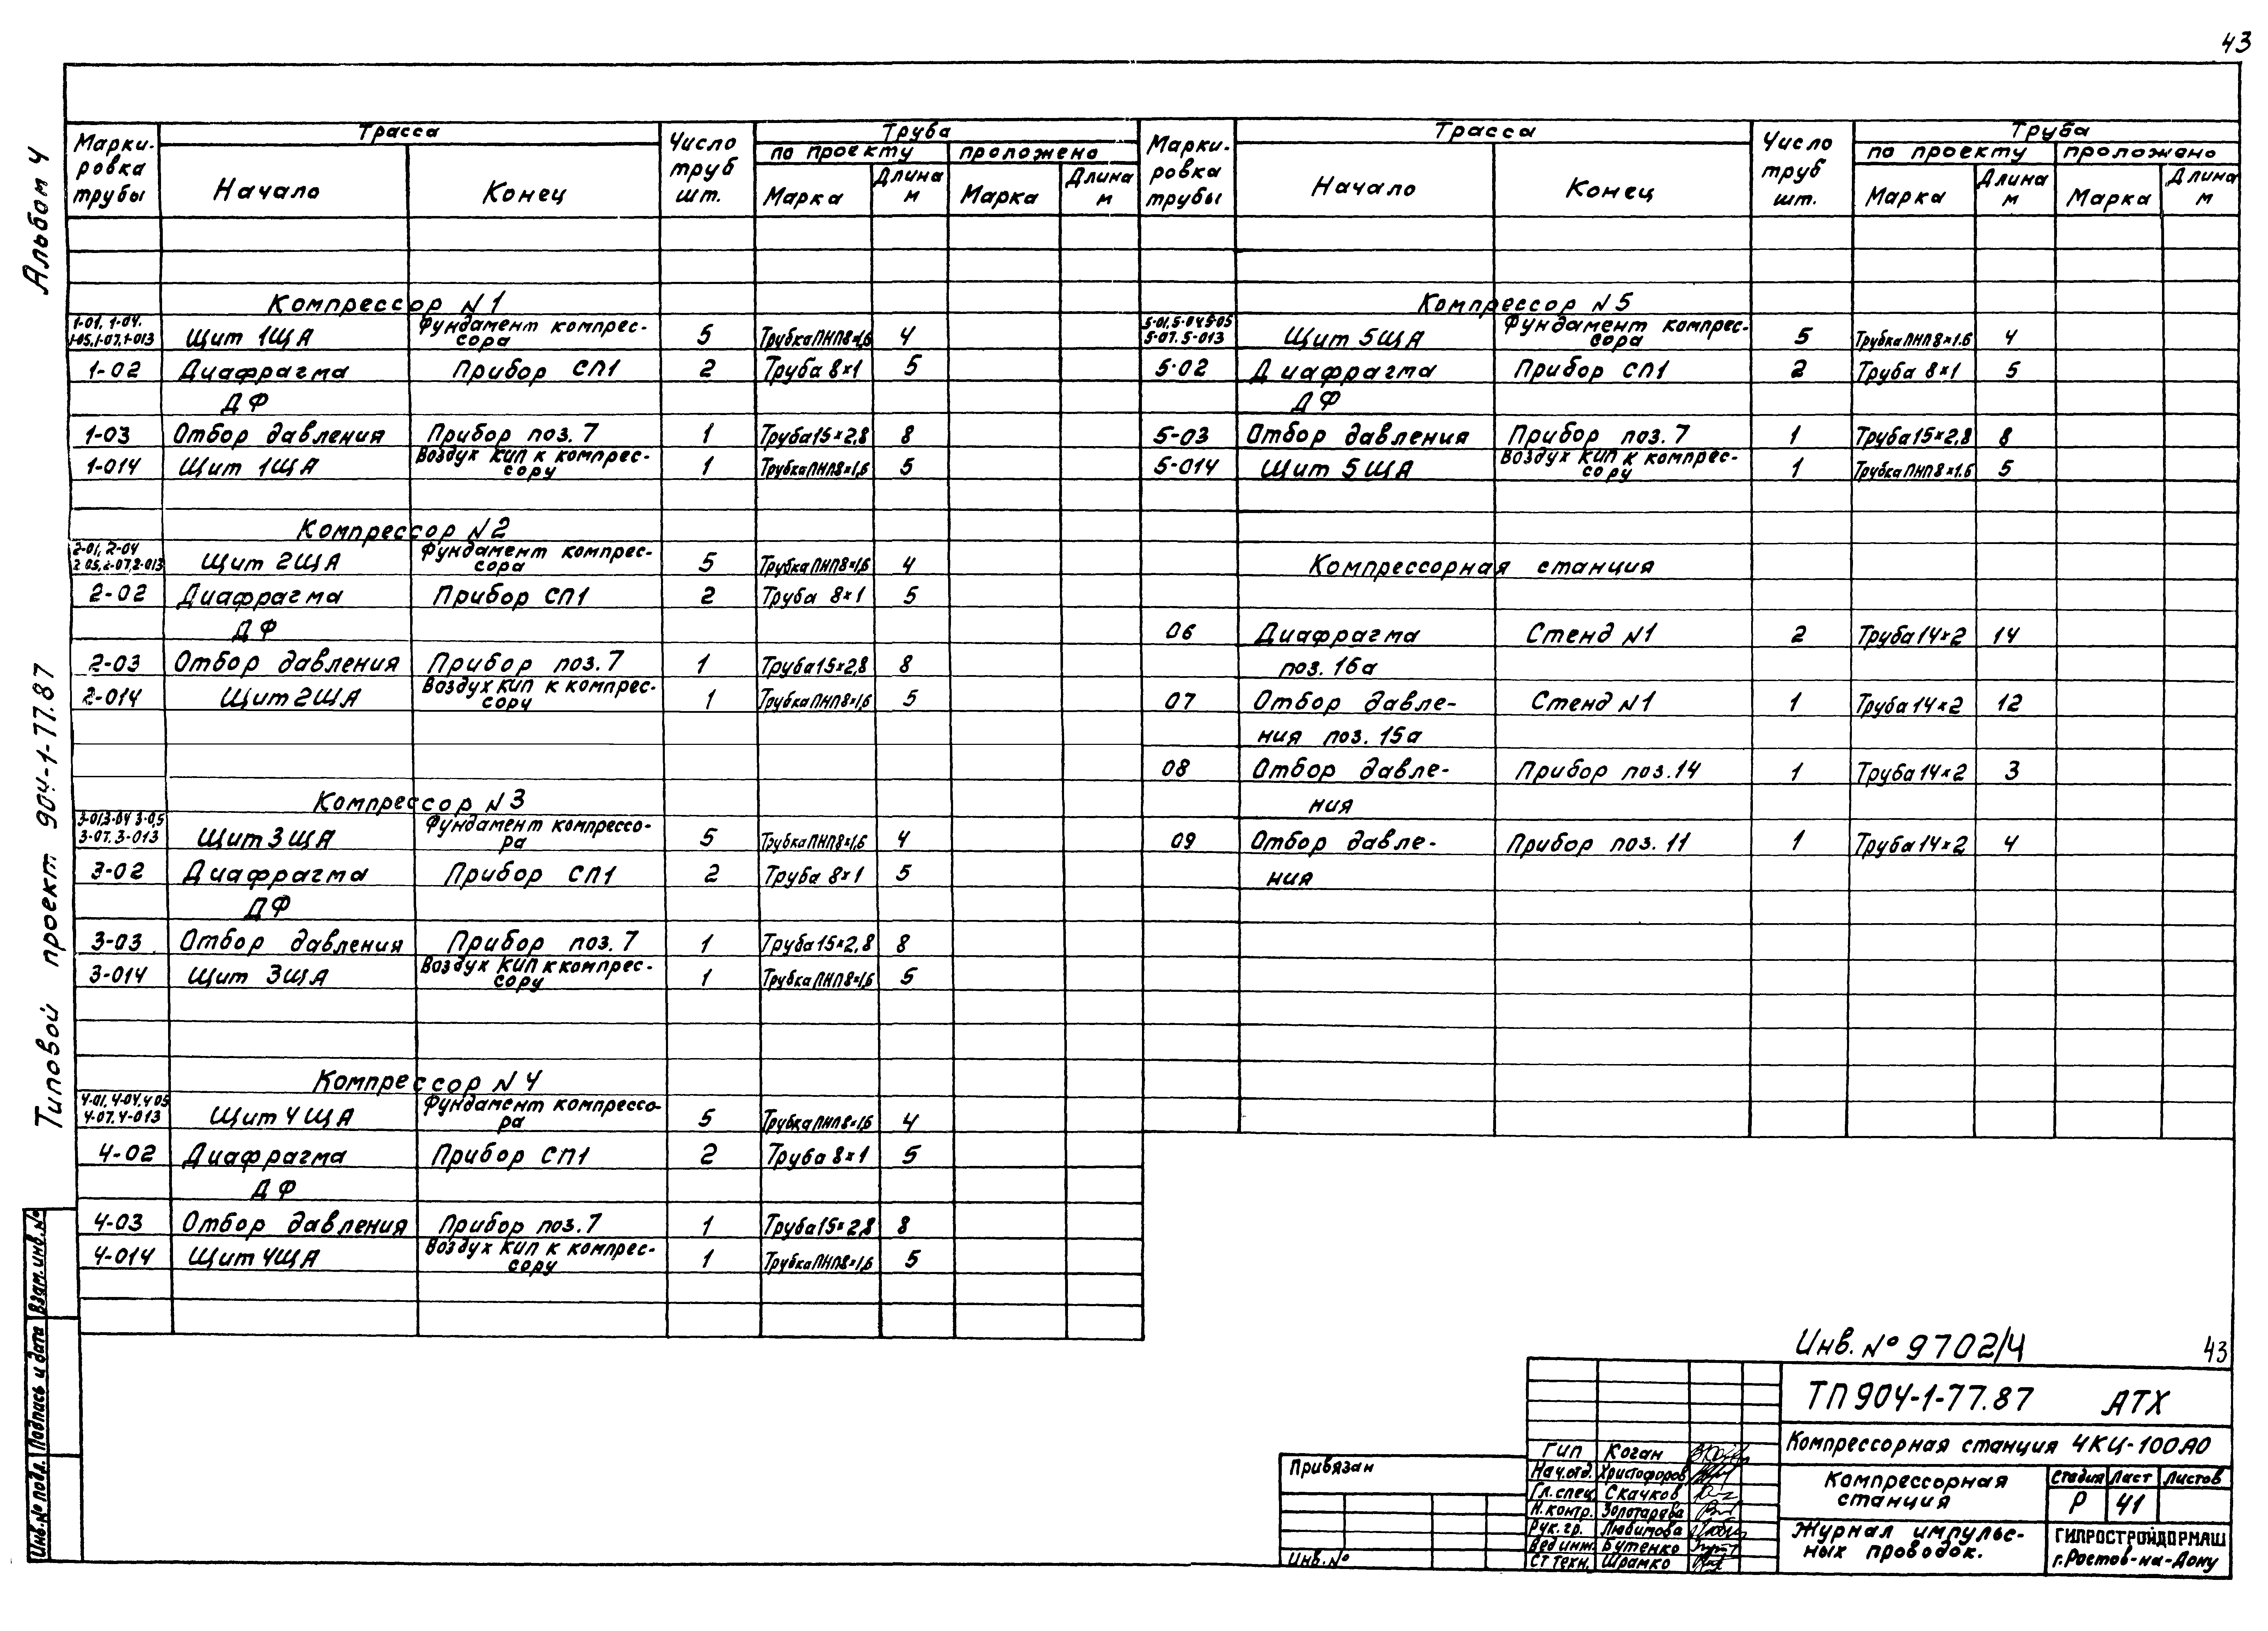 43
Альбом 4
Типовой проект 904-1-77.87
Марки-ровка трубы | Трасса | Число труб шт. | Труба
Начало | Конец | по проекту | проложено
Марка | Длина м | Марка | Длина м
Компрессор N1
1-01, 1-04. 1-05, 1-07, 1-013 | Щит 1ЩА | Фундамент компрес-сора | 5 | Трубка ПНП 8×1,6 | 4
1-02 | Диафрагма | Прибор СП1 | 2 | Труба 8×1 | 5
ДФ
1-03 | Отбор давления | Прибор поз. 7 | 1 | Труба 15×2,8 | 8
1-014 | Щит 1ЩА | Воздух КИП к компрес-сору | 1 | Трубка ПНП 8×1,6 | 5
Компрессор N2
2-01, 2-04 2 05, 2-07, 2-013 | Щит 2ЩА | Фундамент компрес-сора | 5 | Трубка ПНП 8×1,6 | 4
2-02 | Диафрагма | Прибор СП1 | 2 | Труба 8×1 | 5
ДФ
2-03 | Отбор давления | Прибор поз. 7 | 1 | Труба 15×2,8 | 8
2-014 | Щит 2ЩА | Воздух КИП к компрес-сору | 1 | Трубка ПНП 8×1,6 | 5
Компрессор N3
3-01, 3-04 3-05 3-07, 3-013 | Щит 3ЩА | Фундамент компрессо-ра | 5 | Трубка ПНП 8×1,6 | 4
3-02 | Диафрагма | Прибор СП1 | 2 | Труба 8×1 | 5
ДФ
3-03 | Отбор давления | Прибор поз. 7 | 1 | Труба 15×2,8 | 8
3-014 | Щит 3ЩА | Воздух КИП к компрес-сору | 1 | Трубка ПНП 8×1,6 | 5
Компрессор N4
4-01, 4-04, 4 05 4-07, 4-013 | Щит 4ЩА | Фундамент компрессо-ра | 5 | Трубка ПНП 8×1,6 | 4
4-02 | Диафрагма | Прибор СП1 | 2 | Труба 8×1 | 5
ДФ
4-03 | Отбор давления | Прибор поз. 7 | 1 | Труба 15×2,8 | 8
4-014 | Щит 4ЩА | Воздух КИП к компрес-сору | 1 | Трубка ПНП 8×1,6 | 5
Марки-ровка трубы | Трасса | Число труб шт. | Труба
Начало | Конец | по проекту | проложено
Марка | Длина м | Марка | Длина м
Компрессор N5
5-01, 5-04 5-05 5-07. 5-013 | Щит 5ЩА | Фундамент компрес-сора | 5 | Трубка ПНП 8×1.6 | 4
5-02 | Диафрагма | Прибор СП1 | 2 | Труба 8×1 | 5
ДФ
5-03 | Отбор давления | Прибор поз. 7 | 1 | Труба 15×2,8 | 8
5-014 | Щит 5ЩА | Воздух КИП к компрес-сору | 1 | Трубка ПНП 8×1.6 | 5
Компрессорная станция
06 | Диафрагма | Стенд N1 | 2 | Труба 14×2 | 14
поз. 16а
07 | Отбор давле- | Стенд N1 | 1 | Труба 14×2 | 12
ния поз. 15а
08 | Отбор давле- | Прибор поз. 14 | 1 | Труба 14×2 | 3
ния
09 | Отбор давле- | Прибор поз. 11 | 1 | Труба 14×2 | 4
ния
Инв. № 9702/4 43
ТП 904-1-77.87 АТХ
Компрессорная станция 4КЦ-100А0
Компрессорная станция
Стадия Лист Листов
Р 41
Журнал импульс-
ных проводок.
ГИПРОСТРОЙДОРМАШ
г. Ростов-на-Дону
ГИП Коган
Нач.отд. Христофоров
Гл.спец. Скачков
Н.контр. Золотарева
Рук.гр. Любимова
Вед инж. Бутенко
Ст техн. Шрамко
Привязан
Инв.№
Инв.№ подл. Подпись и дата Взам.инв.№